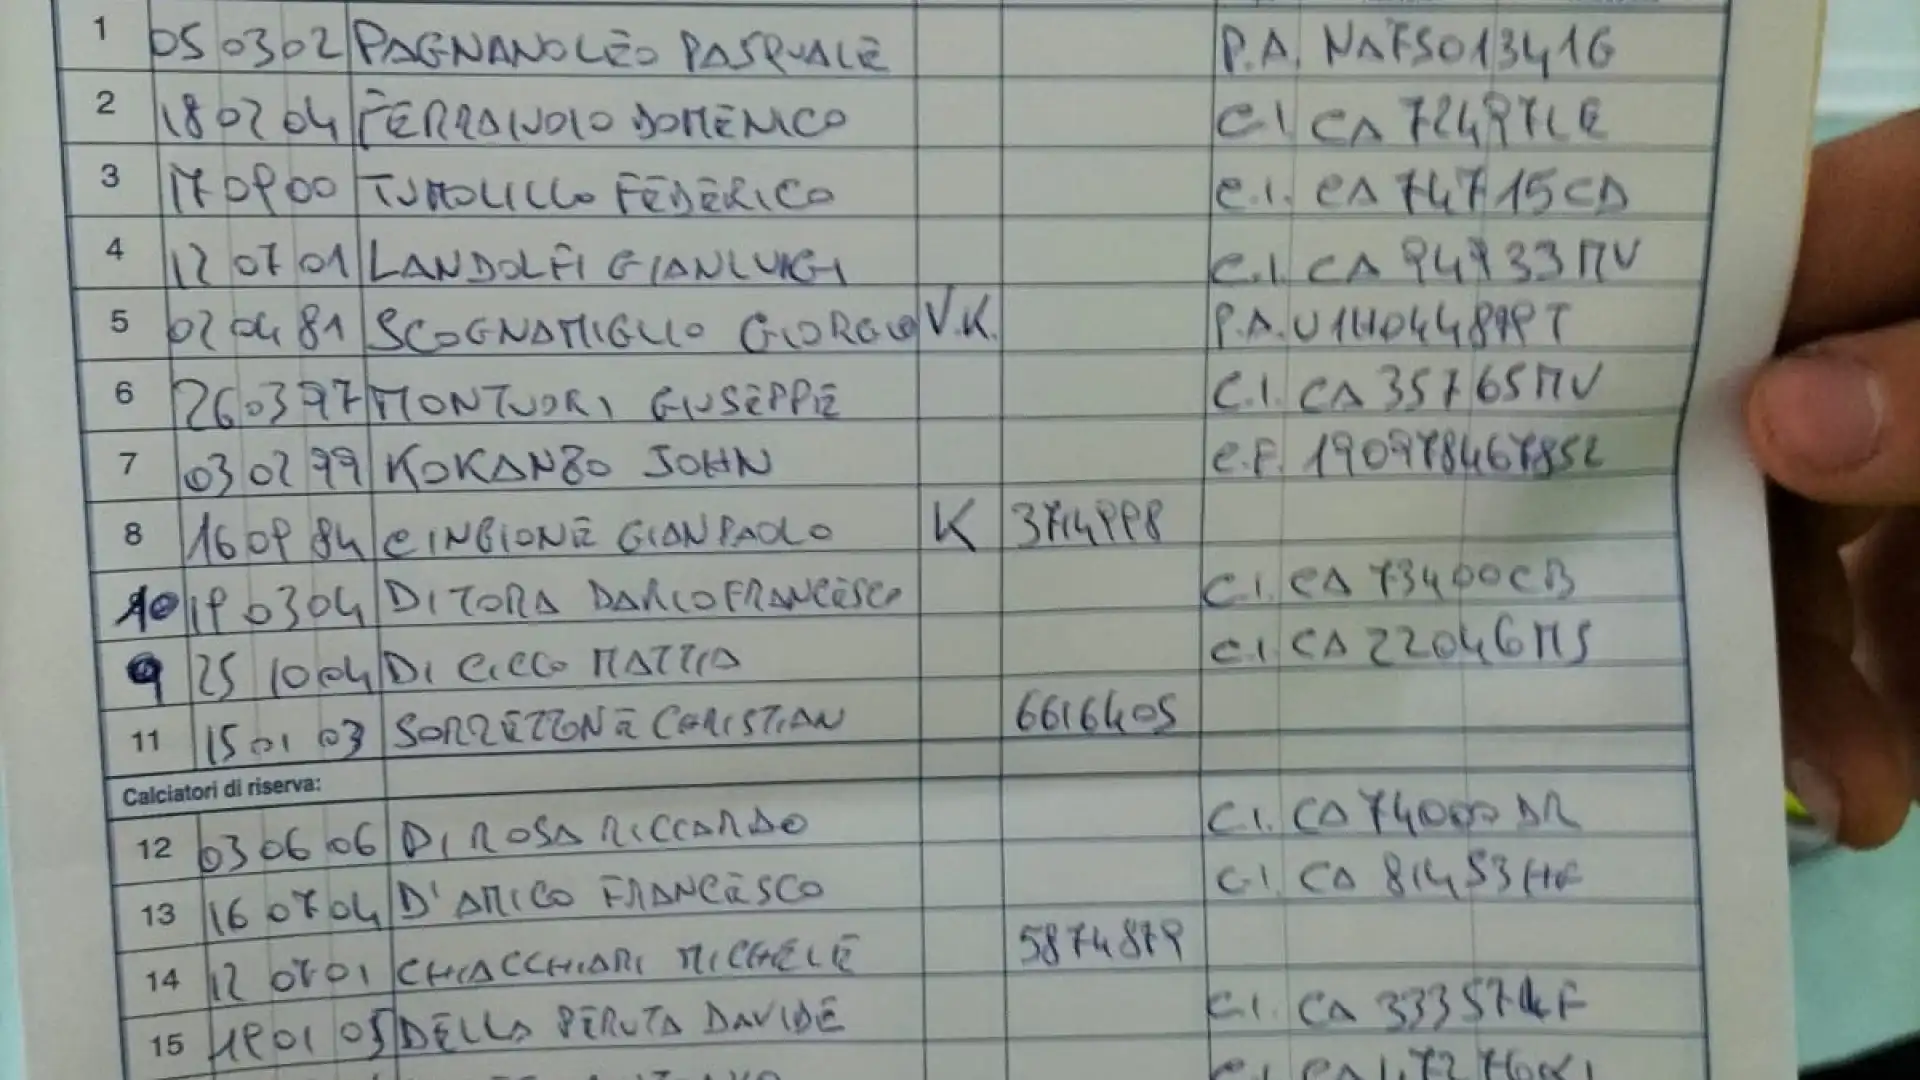 1 05 03 02 PAGNANOLEO PASQUALE P.A. NAFS013416
2 18 02 04 FERRAIUOLO DOMENICO C.I. CA 72497LE
3 17 09 00 TUMOLILLO FEDERICO C.I. CA 74715CD
4 12 07 01 LANDOLFI GIANLUIGI C.I. CA 94933MV
5 02 04 81 SCOGNAMIGLIO GIORGIO V.K. P.A.
6 26 03 97 MONTUORI GIUSEPPE C.I. CA 35765MV
7 03 02 99 KOKANZO JOHN
8 16 09 84 CINGIONE GIANPAOLO K 3714998
10 19 03 04 DITORA DARIO FRANCESCO C.I. CA 73400CB
9 25 10 04 DI CICCO MATTIA C.I. CA 22046MS
11 15 01 03 SORRETTONE CHRISTIAN 6616405
Calciatori di riserva:
12 03 06 06 DI ROSA RICCARDO C.I. CA
13 16 07 04 D'AMICO FRANCESCO C.I. CA 81453HF
14 12 07 01 CHIACCHIARI MICHELE 5874879
15 19 01 05 DELLA PERUTA DAVIDE C.I. CA